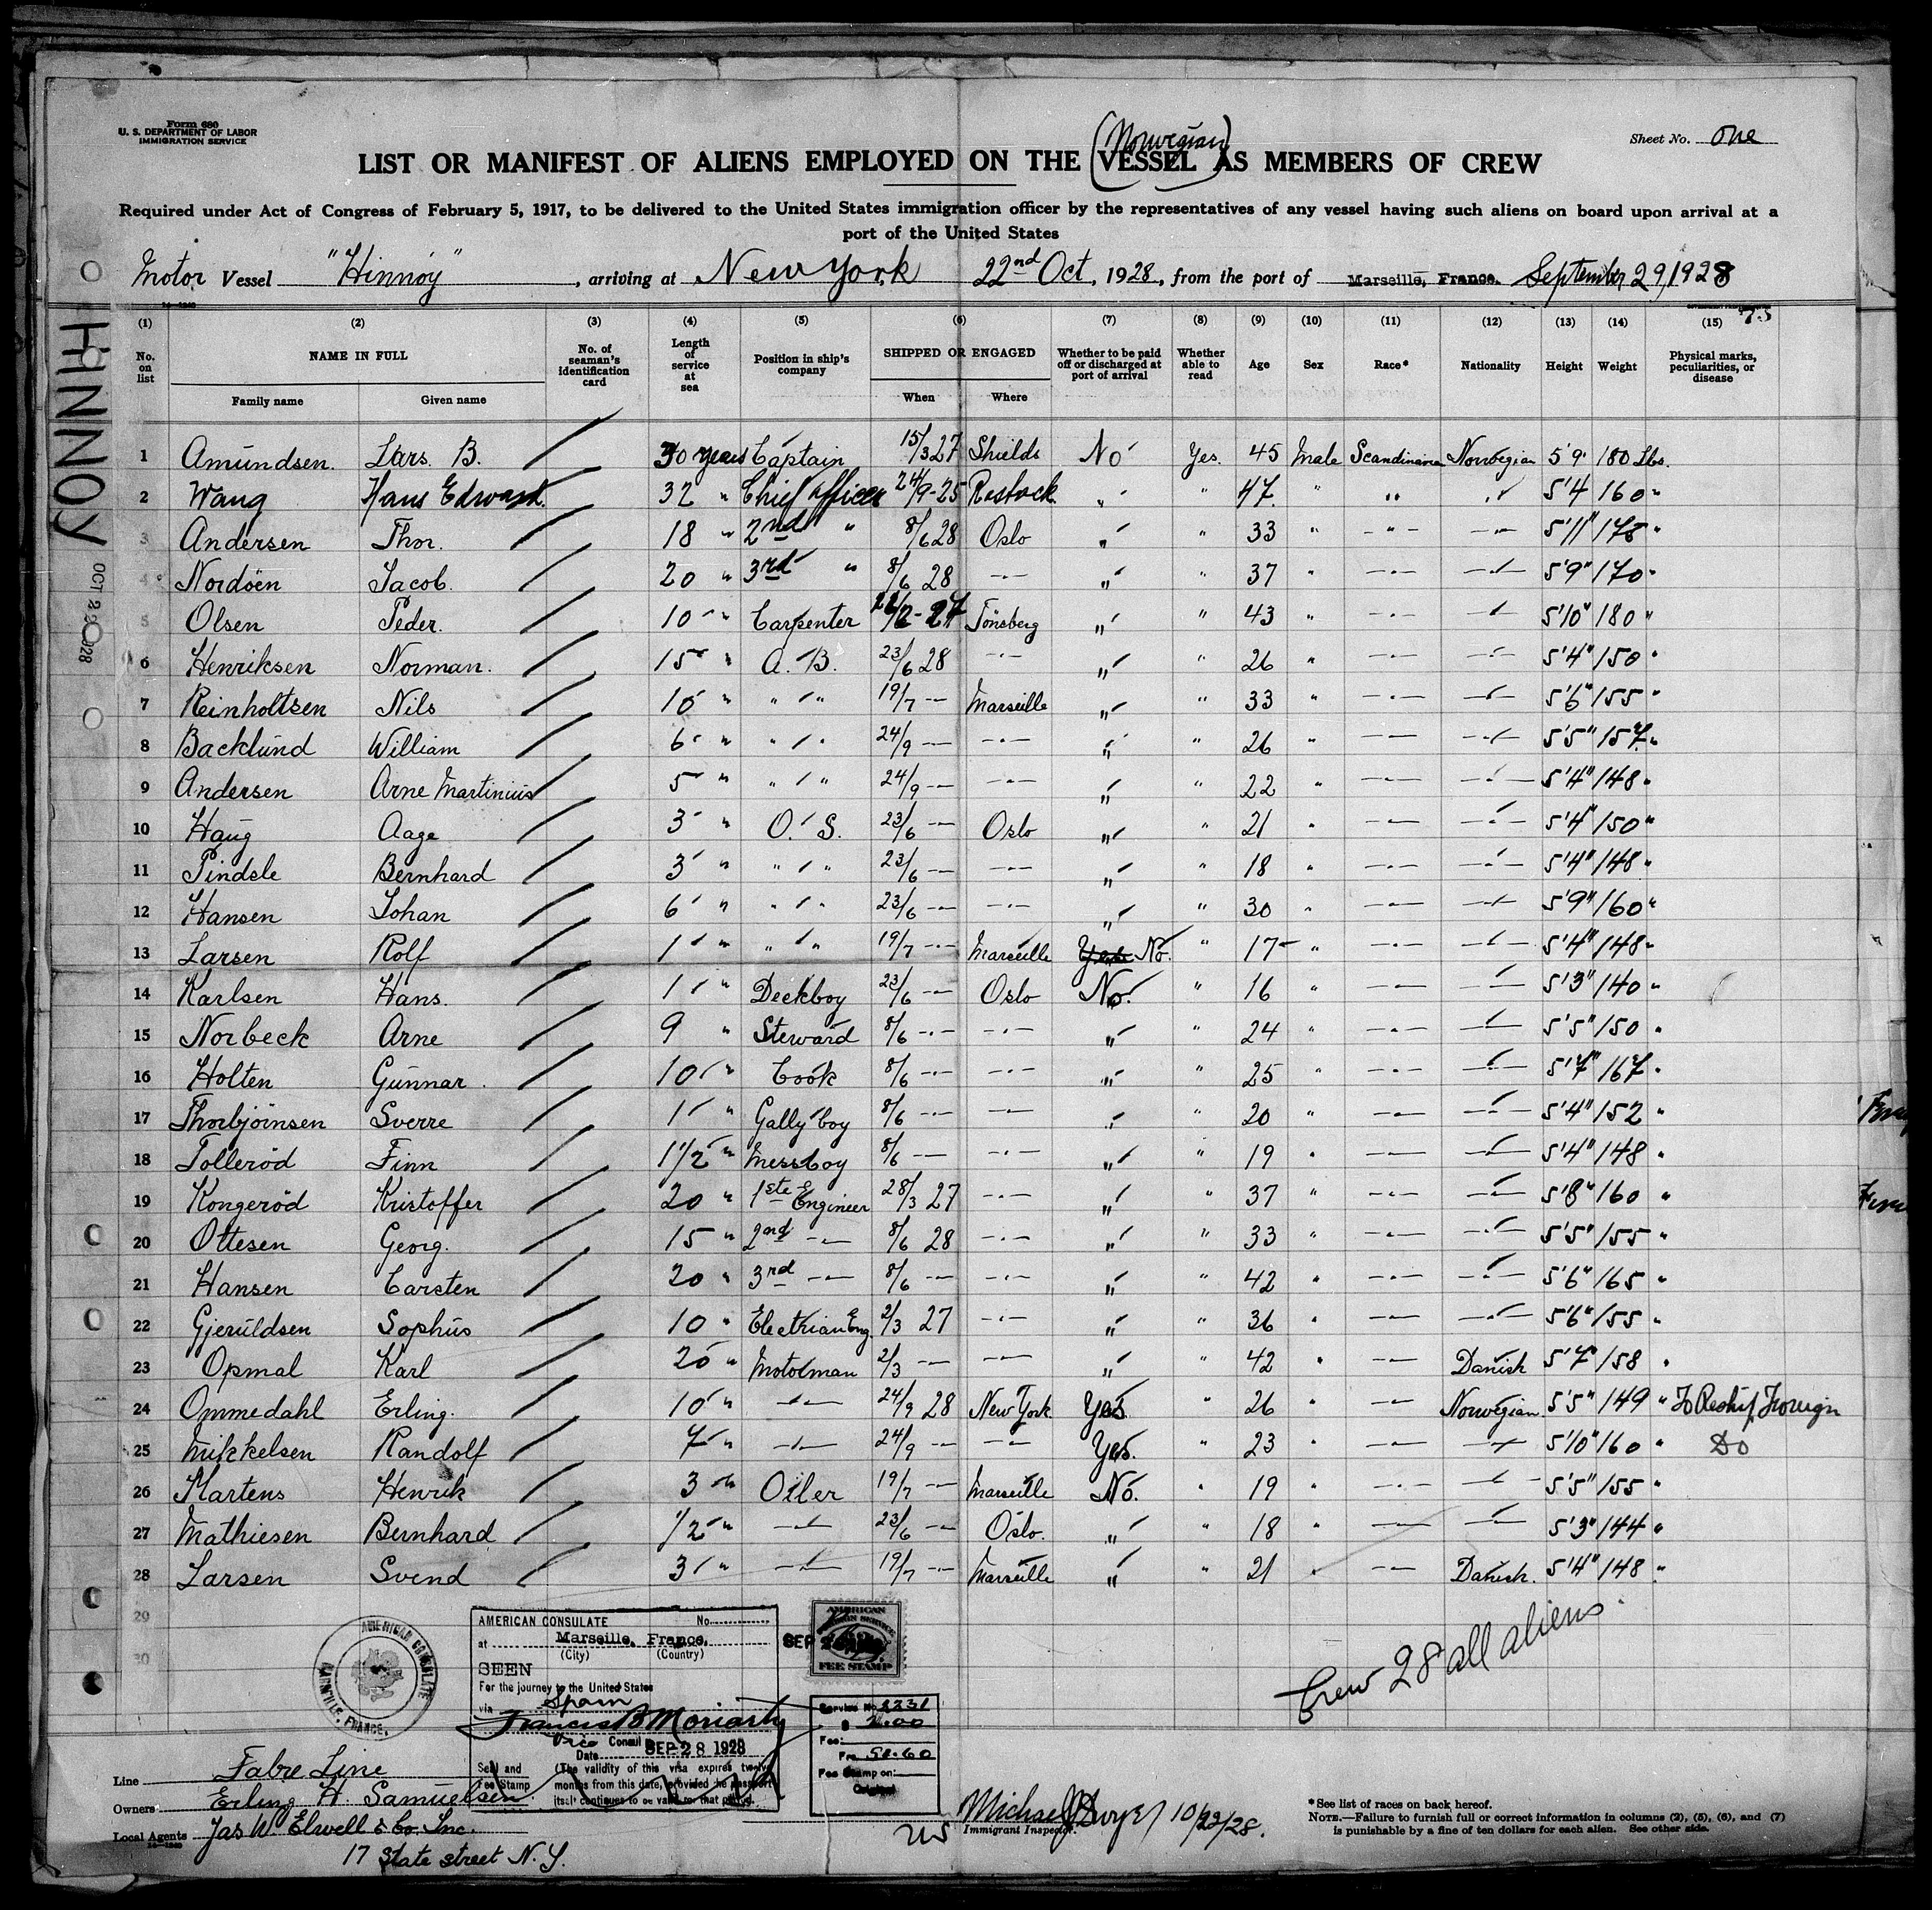 Form 680
U. S. DEPARTMENT OF LABOR
IMMIGRATION SERVICE
Sheet No. One
(Norwegian)
LIST OR MANIFEST OF ALIENS EMPLOYED ON THE VESSEL AS MEMBERS OF CREW
Required under Act of Congress of February 5, 1917, to be delivered to the United States immigration officer by the representatives of any vessel having such aliens on board upon arrival at a
port of the United States
Motor Vessel "Hinnöy", arriving at New York 22nd Oct, 1928, from the port of Marseille, France. September 29, 1928
HINNOY
(1) (2) (3) (4) (5) (6) (7) (8) (9) (10) (11) (12) (13) (14) (15)
No. on list NAME IN FULL Family name Given name No. of seaman's identification card Length of service at sea Position in ship's company SHIPPED OR ENGAGED When Where Whether to be paid off or discharged at port of arrival Whether able to read Age Sex Race* Nationality Height Weight Physical marks, peculiarities, or disease
1 Amundsen. Lars. B. 30 years Captain 15/3 27 Shields No Yes. 45 Male Scandinavia Norwegian 5'9" 180 Lbs.
2 Waug Hans Edward. 32 " Chief officer 24/9-25 Rostock " " 47. " " " 5'4 160 "
3 Andersen Thor. 18 " 2nd " 8/6 28 Oslo " " 33 " - " - - " - 5'11" 178 "
4 Nordöen Jacob. 20 " 3rd " 8/6 28 - " - " " 37 " - " - - " - 5'9" 170 "
5 Olsen Peder. 10 " Carpenter 2-27 Tönsberg " " 43 " - " - - " - 5'10" 180 "
6 Henriksen Norman. 15 " A. B. 23/6 28 - " - " " 26 " - " - - " - 5'4" 150 "
7 Reinholtsen Nils 10 " " " 19/7 - " - Marseille " " 33 " - " - - " - 5'6" 155 "
8 Backlund William 6 " " " 24/9 - " - - " - " " 26 " - " - - " - 5'5" 157 "
9 Andersen Arne Martinius 5 " " " 24/9 - " - - " - " " 22 " - " - - " - 5'4" 148 "
10 Haug Aage 3 " O. S. 23/6 - " - Oslo " " 21 " - " - - " - 5'4" 150 "
11 Pindsle Bernhard 3 " " " 23/6 - " - - " - " " 18 " - " - - " - 5'4" 148 "
12 Hansen Johan 6 " " " 23/6 - " - - " - " " 30 " - " - - " - 5'9" 160 "
13 Larsen Rolf 1 " " " 19/7 - " - Marseille Yes No. " 17 " - " - - " - 5'4" 148 "
14 Karlsen Hans. 1 " Deckboy 23/6 - " - Oslo No. " 16 " - " - - " - 5'3" 140 "
15 Norbeck Arne 9 " Steward 8/6 - " - - " - " " 24 " - " - - " - 5'5" 150 "
16 Holten Gunnar. 10 " Cook 8/6 - " - - " - " " 25 " - " - - " - 5'7" 167 "
17 Thorbjörnsen Sverre 1 " Gally boy 8/6 - " - - " - " " 20 " - " - - " - 5'4" 152 "
18 Tolleröd Finn 1 1/2 " Messboy 8/6 - " - - " - " " 19 " - " - - " - 5'4" 148 "
19 Kongeröd Kristoffer 20 " 1ste Engineer 28/3 27 - " - " " 37 " - " - - " - 5'8" 160 "
20 Ottesen Georg. 15 " 2nd - " - 8/6 28 - " - " " 33 " - " - - " - 5'5" 155 "
21 Hansen Carsten 20 " 3rd - " - 8/6 - " - - " - " " 42 " - " - - " - 5'6" 165 "
22 Gjeruldsen Sophus 10 " Electrian Eng. 2/3 27 - " - " " 36 " - " - - " - 5'6" 155 "
23 Opmal Karl 20 " Motorman 2/3 - " - - " - " " 42 " - " - Danish 5'7" 158 "
24 Ommedahl Erling. 10 " - " - 24/9 28 New York Yes. " 26 " - " - Norwegian. 5'5" 149 " To Reship Foreign
25 Mikkelsen Randolf 7 " - " - 24/9 - " - - " - Yes. " 23 " - " - - " - 5'10" 160 " Do
26 Martens Henrik 3 " Oiler 19/7 - " - Marseille No. " 19 " - " - - " - 5'5" 155 "
27 Mathiesen Bernhard 1/2 " - " - 23/6 - " - Oslo. " " 18 " - " - - " - 5'3" 144 "
28 Larsen Svend 3 " - " - 19/7 - " - Marseille " " 21 " - " - Danish. 5'4" 148 "
29
30
Crew 28 all aliens.
AMERICAN CONSULATE
MARSEILLE, FRANCE.
AMERICAN CONSULATE No.
at Marseille, France.
(City) (Country)
SEEN
For the journey to the United States
via Spain
Francis B Moriarty
Vice Consul
Date SEP 28 1928
Seal and Fee Stamp
(The validity of this visa expires twelve
months from this date, provided the passport
itself continues to be valid for that period.
AMERICAN
FEE STAMP
Service No. 2231
Fee:
Frs. 51.60
Fee Stamp on:
Original
Line Fabre Line
Owners Erling H. Samuelsen
Local Agents Jas W. Elwell & Co. Inc.
17 State street N. Y.
Michael J Dwyer 10/22/28.
Immigrant Inspector.
*See list of races on back hereof.
NOTE.—Failure to furnish full or correct information in columns (2), (5), (6), and (7)
is punishable by a fine of ten dollars for each alien. See other side.